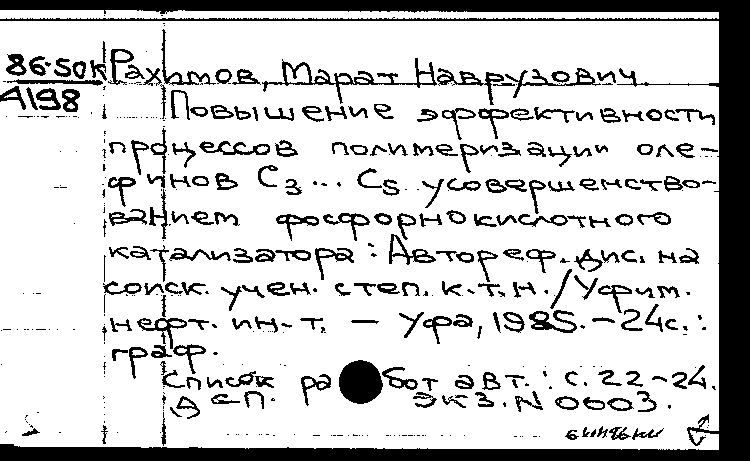 86-50к Рахимов, Марат Наврузович.
А198 Повышение эффективности
процессов полимеризации оле-
финов С3... С5 усовершенство-
ванием фосфорнокислотного
катализатора : Автореф. дис. на
соиск. учен. степ. к.т.н. / Уфим.
нефт. ин-т. — Уфа, 1985. - 24с. :
граф.
Список работ авт. : с. 22-24.
ДСП. Экз. N 0003.